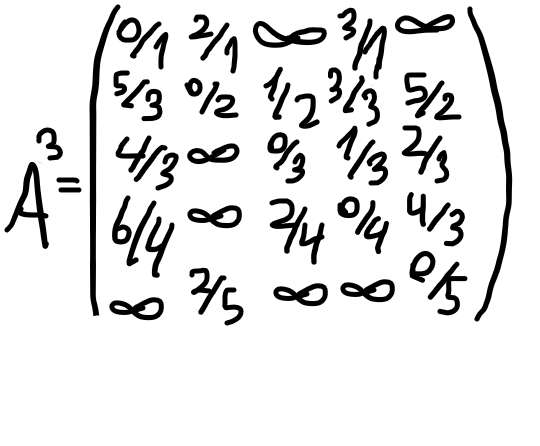 0/1 2/1 ∞ 3/1 ∞
5/3 0/2 1/2 3/3 5/2
A³= 4/3 ∞ 0/3 1/3 2/3
6/4 ∞ 2/4 0/4 4/3
∞ 2/5 ∞ ∞ 0/5